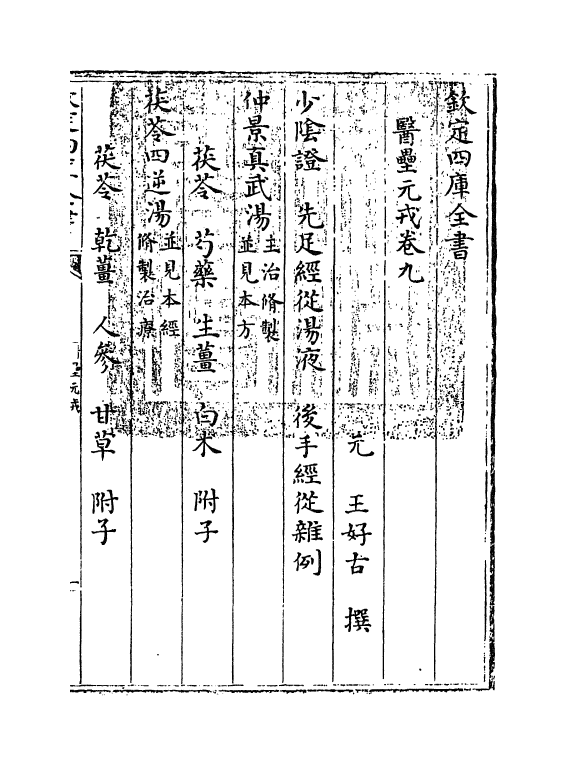 欽定四庫全書
醫壘元戎卷九
元 王好古 撰
少陰證 先足經從湯液 後手經從雜例
仲景真武湯主治脩製並見本方
茯苓 芍藥 生薑 白术 附子
茯苓四逆湯並見本經脩製治療
茯苓 乾薑 人參 甘草 附子